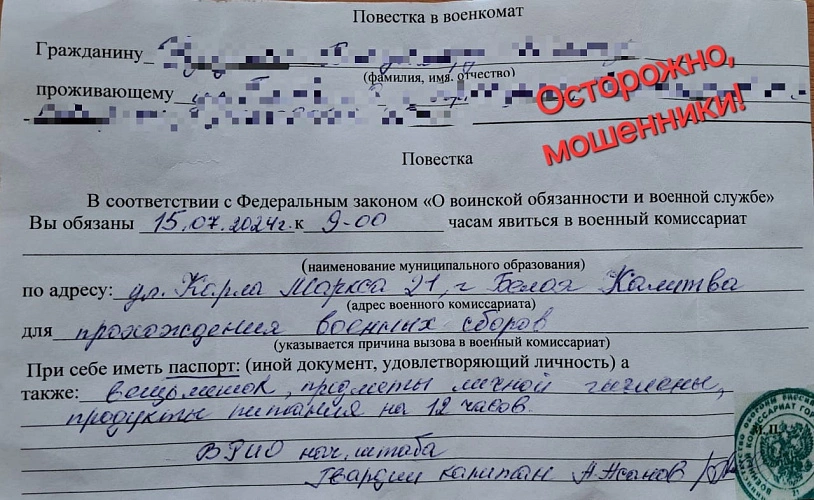 Повестка в военкомат
Гражданину
(фамилия, имя, отчество)
проживающему
Осторожно,
мошенники!
Повестка
В соответствии с Федеральным законом «О воинской обязанности и военной службе»
Вы обязаны 15.07.2024г. к 9-00 часам явиться в военный комиссариат
(наименование муниципального образования)
по адресу: ул. Карла Маркса 21, г Белая Калитва
(адрес военного комиссариата)
для прохождения военных сборов
(указывается причина вызова в военный комиссариат)
При себе иметь паспорт: (иной документ, удовлетворяющий личность) а
также: вещьмешок, предметы личной гигиены,
продукты питания на 12 часов.
М.П.
ВРИО нач. штаба
Гвардии капитан А. Жанов